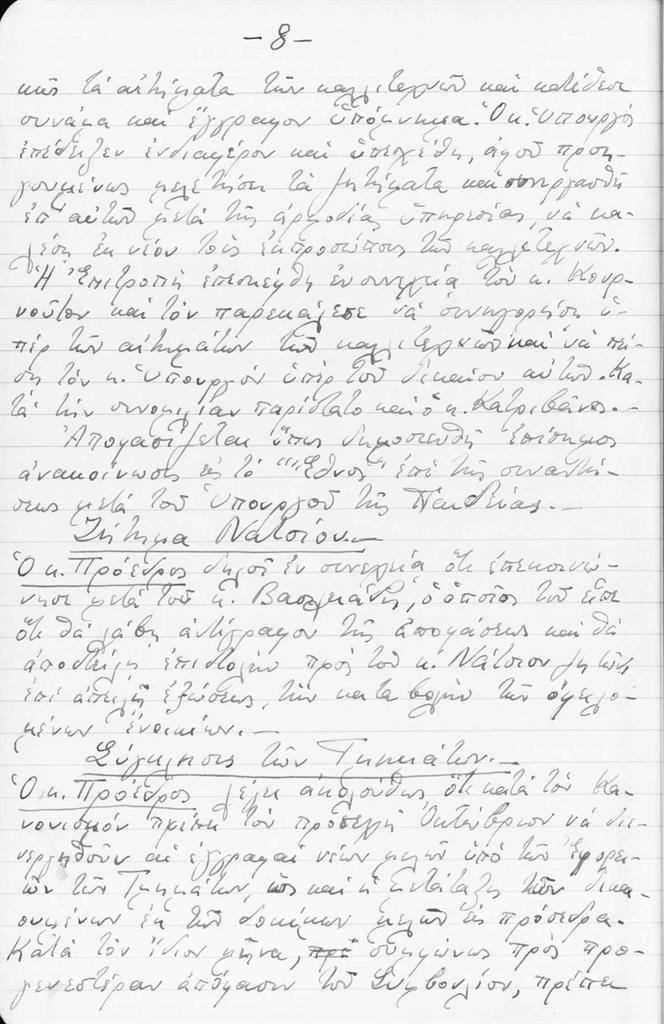 -8-
κῶς τὰ αἰτήματα τῶν καλλιτεχνῶν καὶ κατέθεσε
συνάμα καὶ ἔγγραφον ὑπόμνημα. Ὁ κ. Ὑπουργὸς
ἐπέδειξεν ἐνδιαφέρον καὶ ὑπεσχέθη, ἀφοῦ προη-
γουμένως μελετήσῃ τὰ ζητήματα καὶ συνεργασθῇ
ἐπ' αὐτῶν μετὰ τῆς ἁρμοδίας ὑπηρεσίας, νὰ κα-
λέσῃ ἐκ νέου τοὺς ἐκπροσώπους τῶν καλλιτεχνῶν.
Ἡ Ἐπιτροπὴ ἐπεσκέφθη ἐν συνεχείᾳ τὸν κ. Κουρ-
νοῦτον καὶ τὸν παρεκάλεσε νὰ συνηγορήσῃ ὑ-
πὲρ τῶν αἰτημάτων τῶν καλλιτεχνῶν καὶ νὰ πεί-
σῃ τὸν κ. Ὑπουργὸν ὑπὲρ τοῦ δικαίου αὐτῶν. Κα-
τὰ τὴν συνομιλίαν παρίστατο καὶ ὁ κ. Κατριβάνος.-
Ἀποφασίζεται ὅπως δημοσιευθῇ ἐπίσημος
ἀνακοίνωσις εἰς τὸ "Ἔθνος" ἐπὶ τῆς συναντή-
σεως μετὰ τοῦ Ὑπουργοῦ τῆς Παιδείας.-
Ζήτημα Νάτσιου.-
Ὁ κ. Πρόεδρος δηλοῖ ἐν συνεχείᾳ ὅτι ἐπεκοινώ-
νησε μετὰ τοῦ κ. ὁ ὁποῖος τοῦ εἶπε
ὅτι θὰ λάβῃ ἀντίγραφον τῆς ἀποφάσεως καὶ θὰ
ἀποστείλῃ ἐπιστολὴν πρὸς τὸν κ. Νάτσιον ζητῶν,
ἐπὶ ἀπειλῇ ἐξώσεως, τὴν καταβολὴν τῶν ὀφειλο-
μένων ἐνοικίων.-
Σύγκλησις τῶν Τμημάτων.-
Ὁ κ. Πρόεδρος λέγει ἀκολούθως ὅτι κατὰ τὸν Κα-
νονισμὸν πρέπει τὸν προσεχῆ Ὀκτώβριον νὰ διε-
νεργηθοῦν αἱ ἐγγραφαὶ νέων μελῶν ὑπὸ τῶν Ἐφορει-
ῶν τῶν Τμημάτων, ὡς καὶ ἡ μετάταξις τῶν δικαι-
ουμένων ἐκ τῶν δοκίμων μελῶν εἰς πρόσεδρα.
Κατὰ τὸν ἴδιον μῆνα, συμφώνως πρὸς προ-
γενεστέραν ἀπόφασιν τοῦ Συμβουλίου, πρέπει